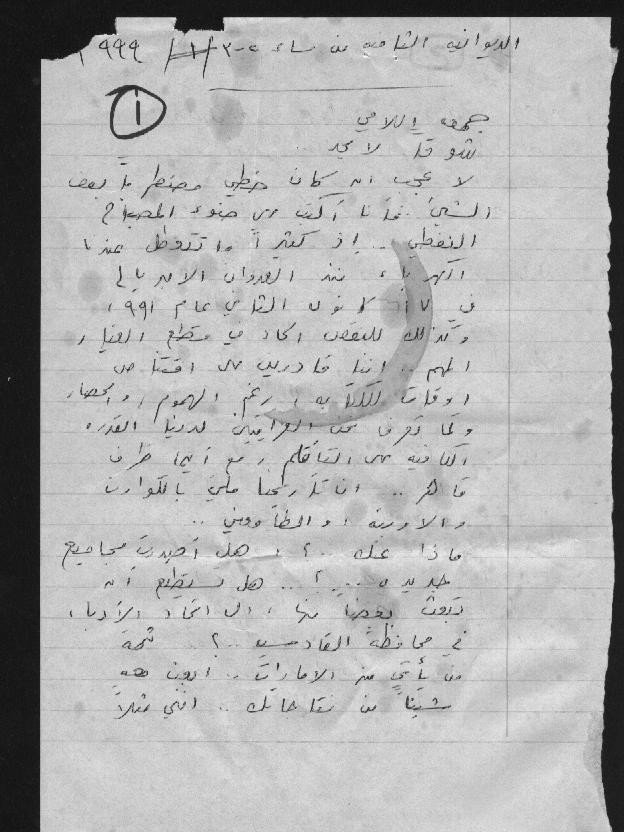 الديوانية الثامنة من مساء ٢-٣/١/١٩٩٩
١
جمعه اللامي
شوقاً لا يحد ..
لا عجب ان كان خطي مضطرباً بعض
الشيئ .. فأنا أكتب على ضوء المصباح
النفطي .. إذ كثيراً ما تتعطل عندنا
الكهرباء، منذ العدوان الامريالي
في كانون الثاني عام ١٩٩١،
وكذلك للنقص الحاد في قطع الغيار
المهم .. اننا قادرين على اقتناص
اوقات للكتابة، رغم الهموم، والحصار
وكما تعرف نحن العراقيين لدينا القدرة
الكافية على التأقلم مع أيما ظرف
قاهر .. ان تأريخنا مليئ بالكوارث
والاوبئة، والطواعين ..
ماذا عنك ..؟، هل أصدرت مجاميع
جديدة ..؟ .. هل تستطيع أن
تبعث بعضاً منها، الى اتحاد الأدباء
في محافظة القادسية ..؟ .. ثمة
من يأتي من الامارات .. ابعث معه
شيئاً من نتاجاتك .. انني مثلاً